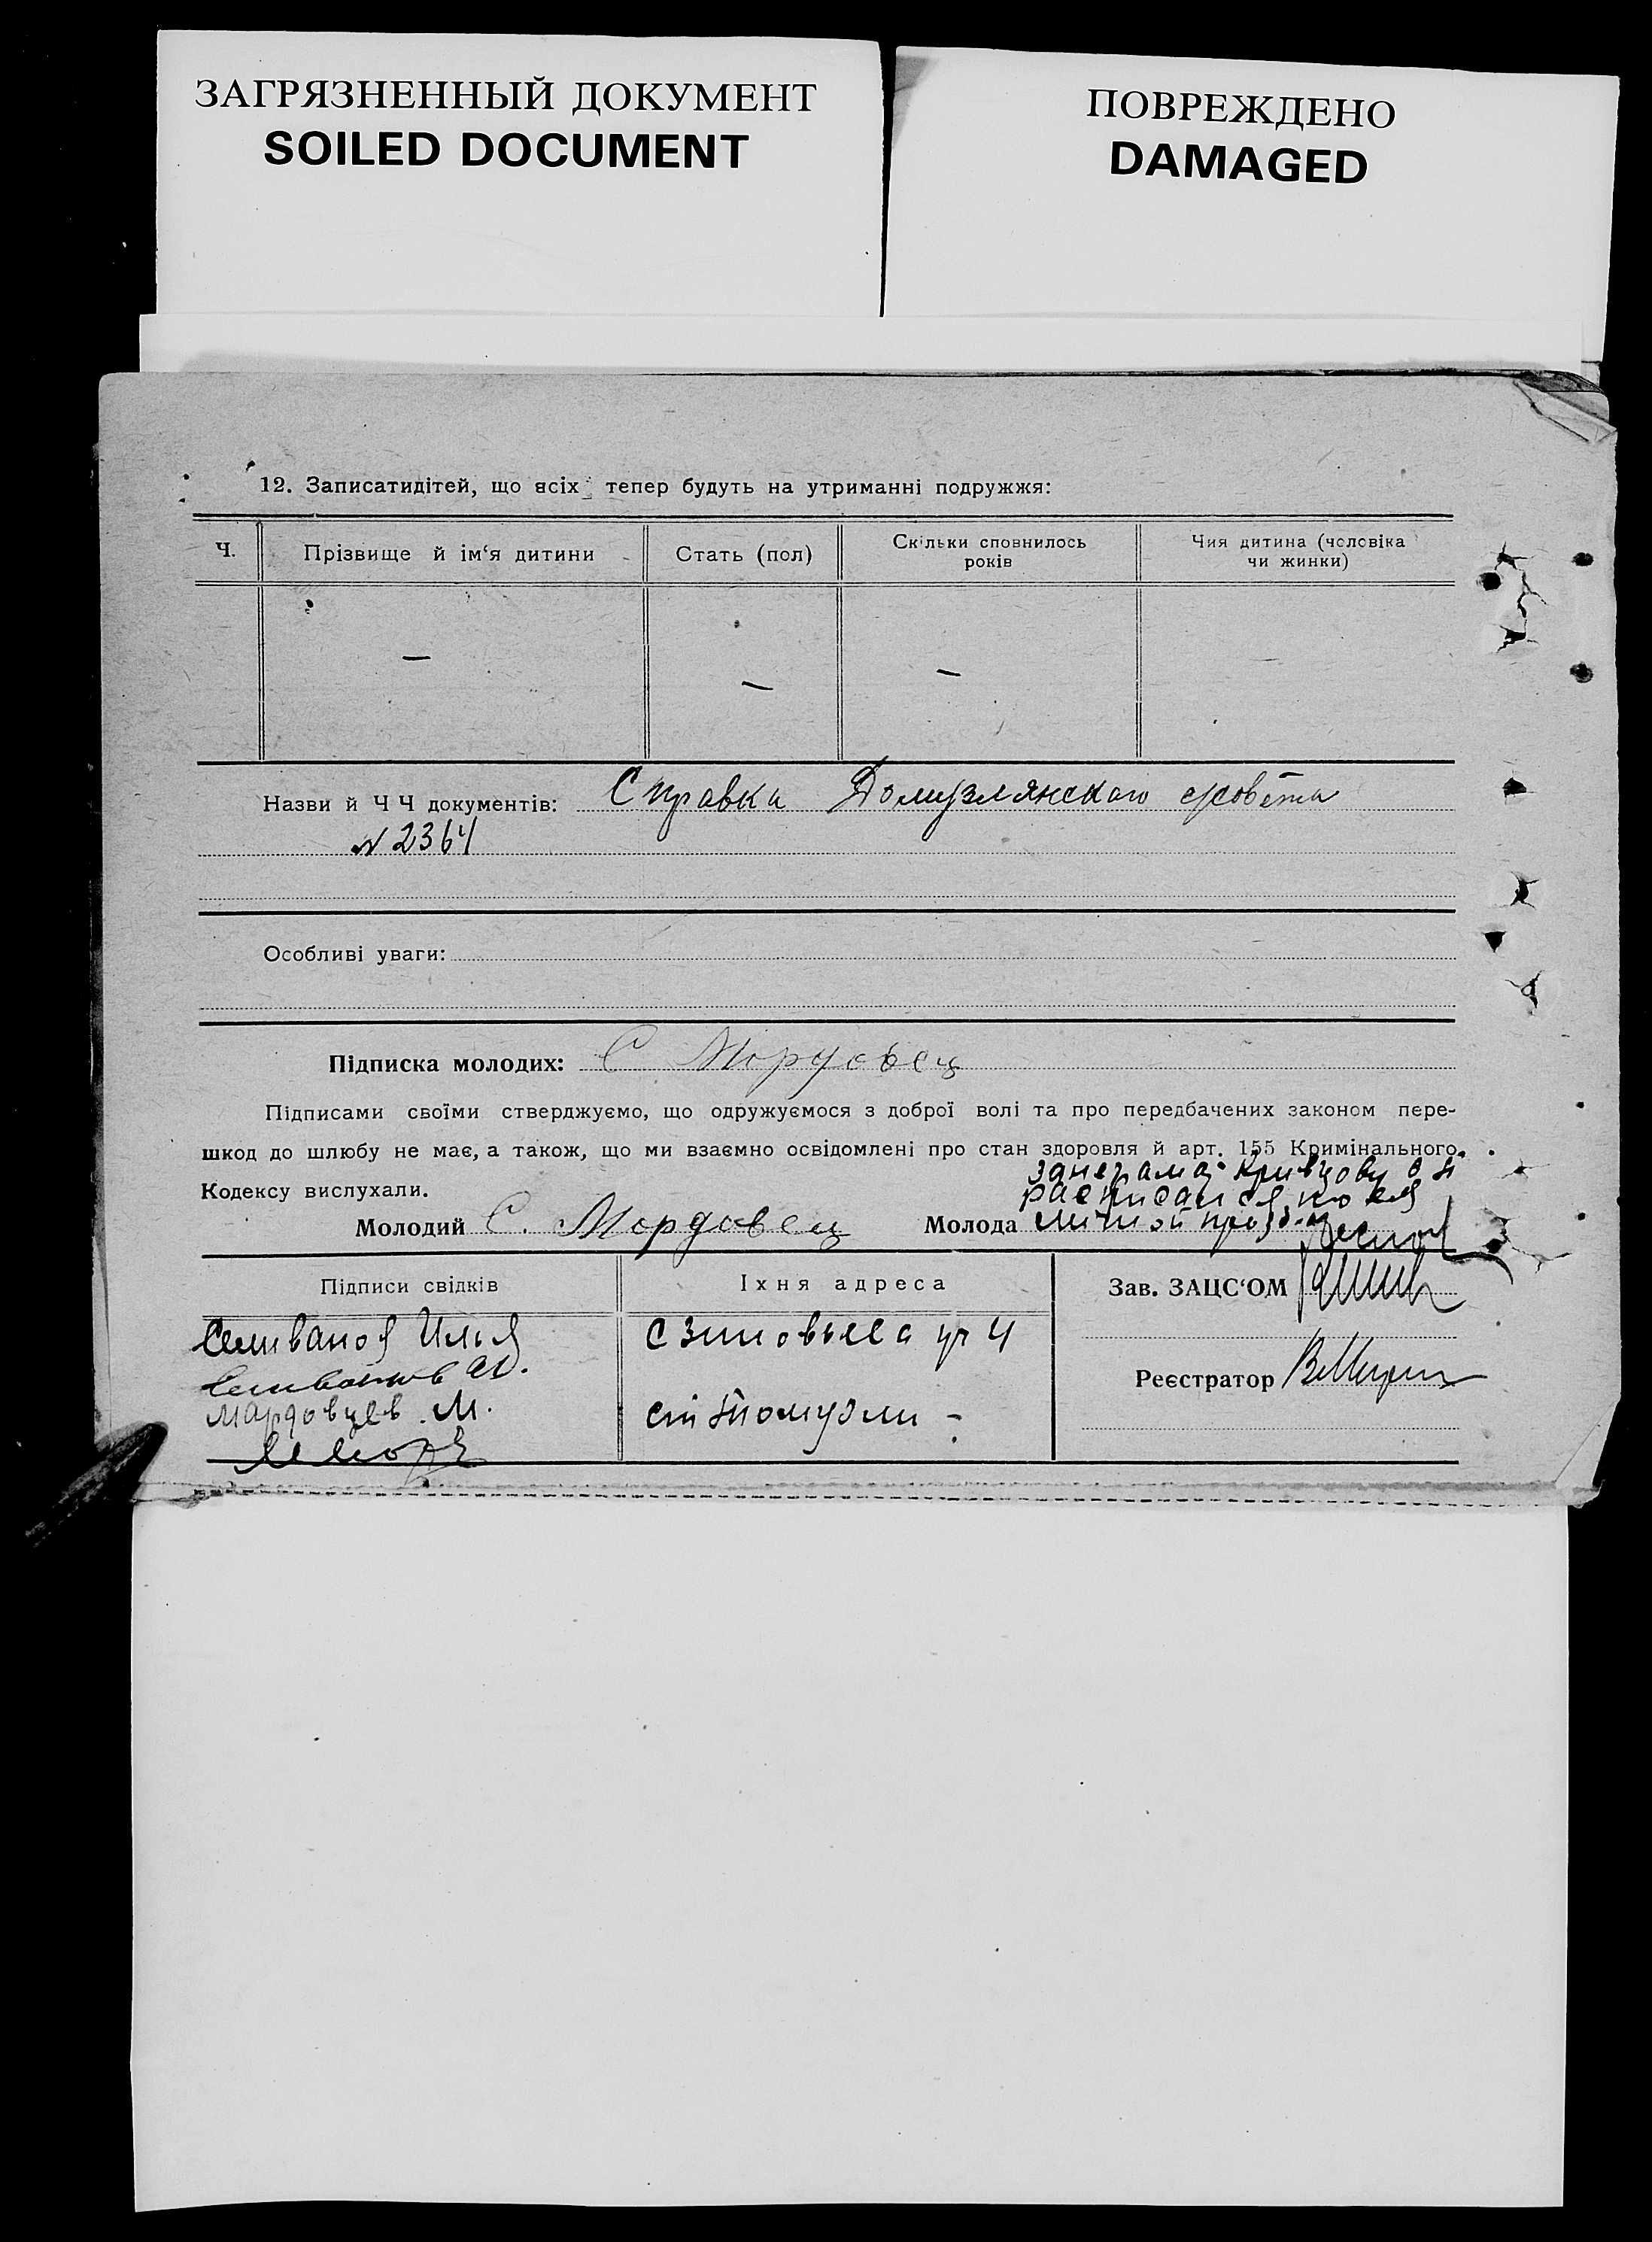 ЗАГРЯЗНЕННЫЙ ДОКУМЕНТ
SOILED DOCUMENT
ПОВРЕЖДЕНО
DAMAGED
12. Записатидітей, що всіх тепер будуть на утриманні подружжя:
Ч.
Прізвище й ім‘я дитини
Стать (пол)
Скільки сповнилось років
Чия дитина (чоловіка чи жинки)
— — —
Назви й Ч Ч документів: Справка Домузлянского с/совета
№ 2364
Особливі уваги:
Підписка молодих: С Мордовец
Підписами своїми стверджуємо, що одружуємося з доброї волі та про передбачених законом пере-
шкод до шлюбу не має, а також, що ми взаємно освідомлені про стан здоровля й арт. 155 Кримінального
Кодексу вислухали.
за неграмот Кривцову
расписался по ея
личной прозьб
Молодий С. Мордовец Молода
Підписи свідків
Іхня адреса
Зав. ЗАЦС‘ОМ
Селиванов Илья
с Зиновьева
Селиванов
Реєстратор
Мардовцев М.